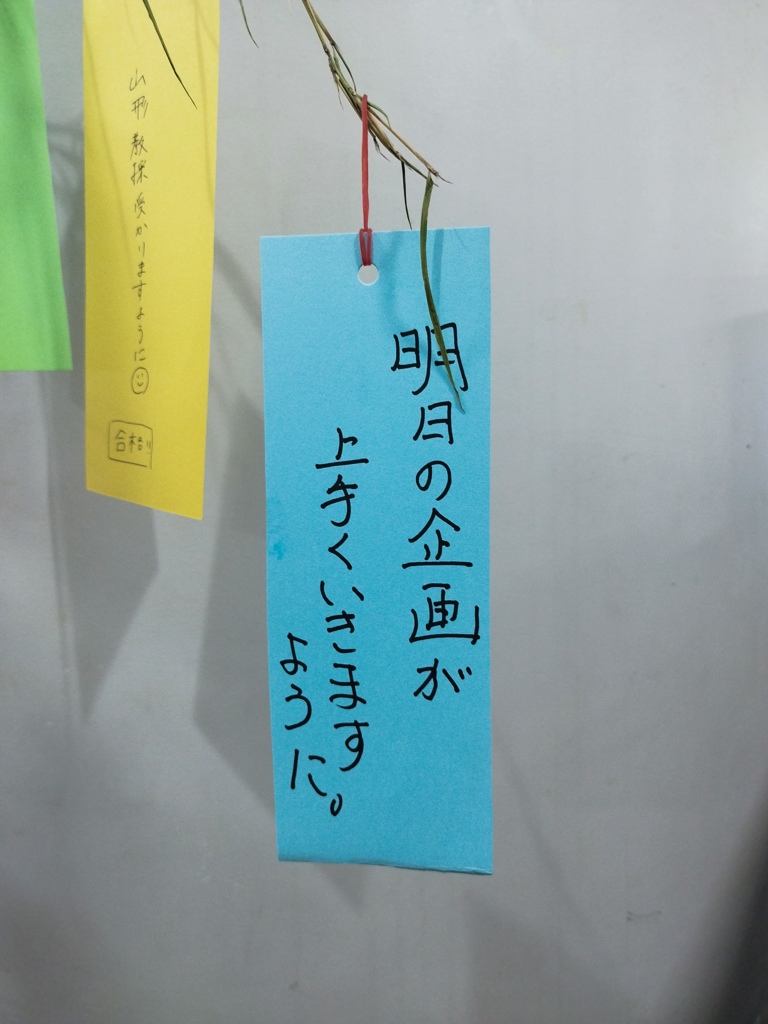 明日の企画が
上手くいきます
ように。
山形 教採 受かりますように
合格!!